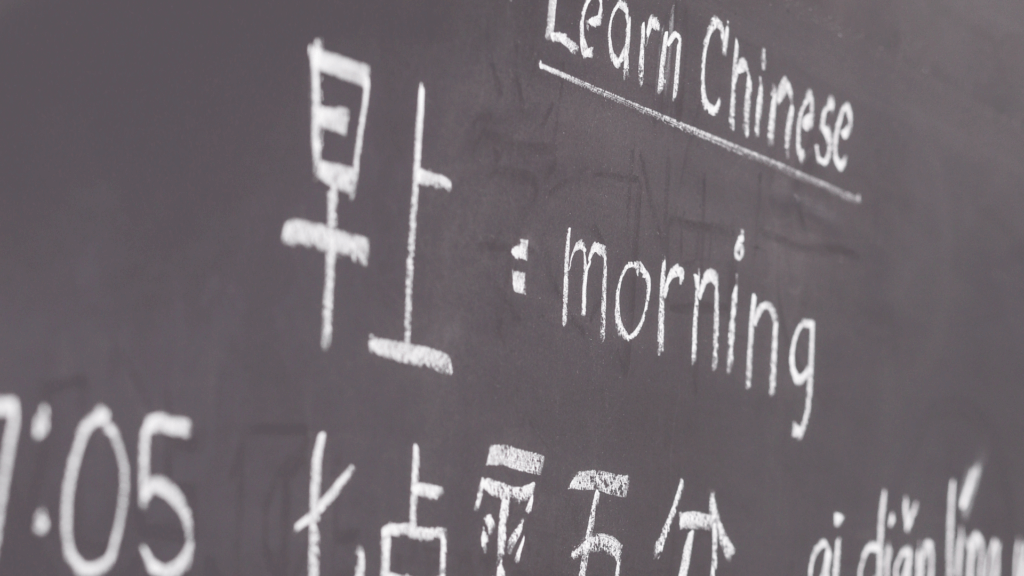 Learn Chinese
早上 : morning
7:05 七点零五分 qi diǎn líng